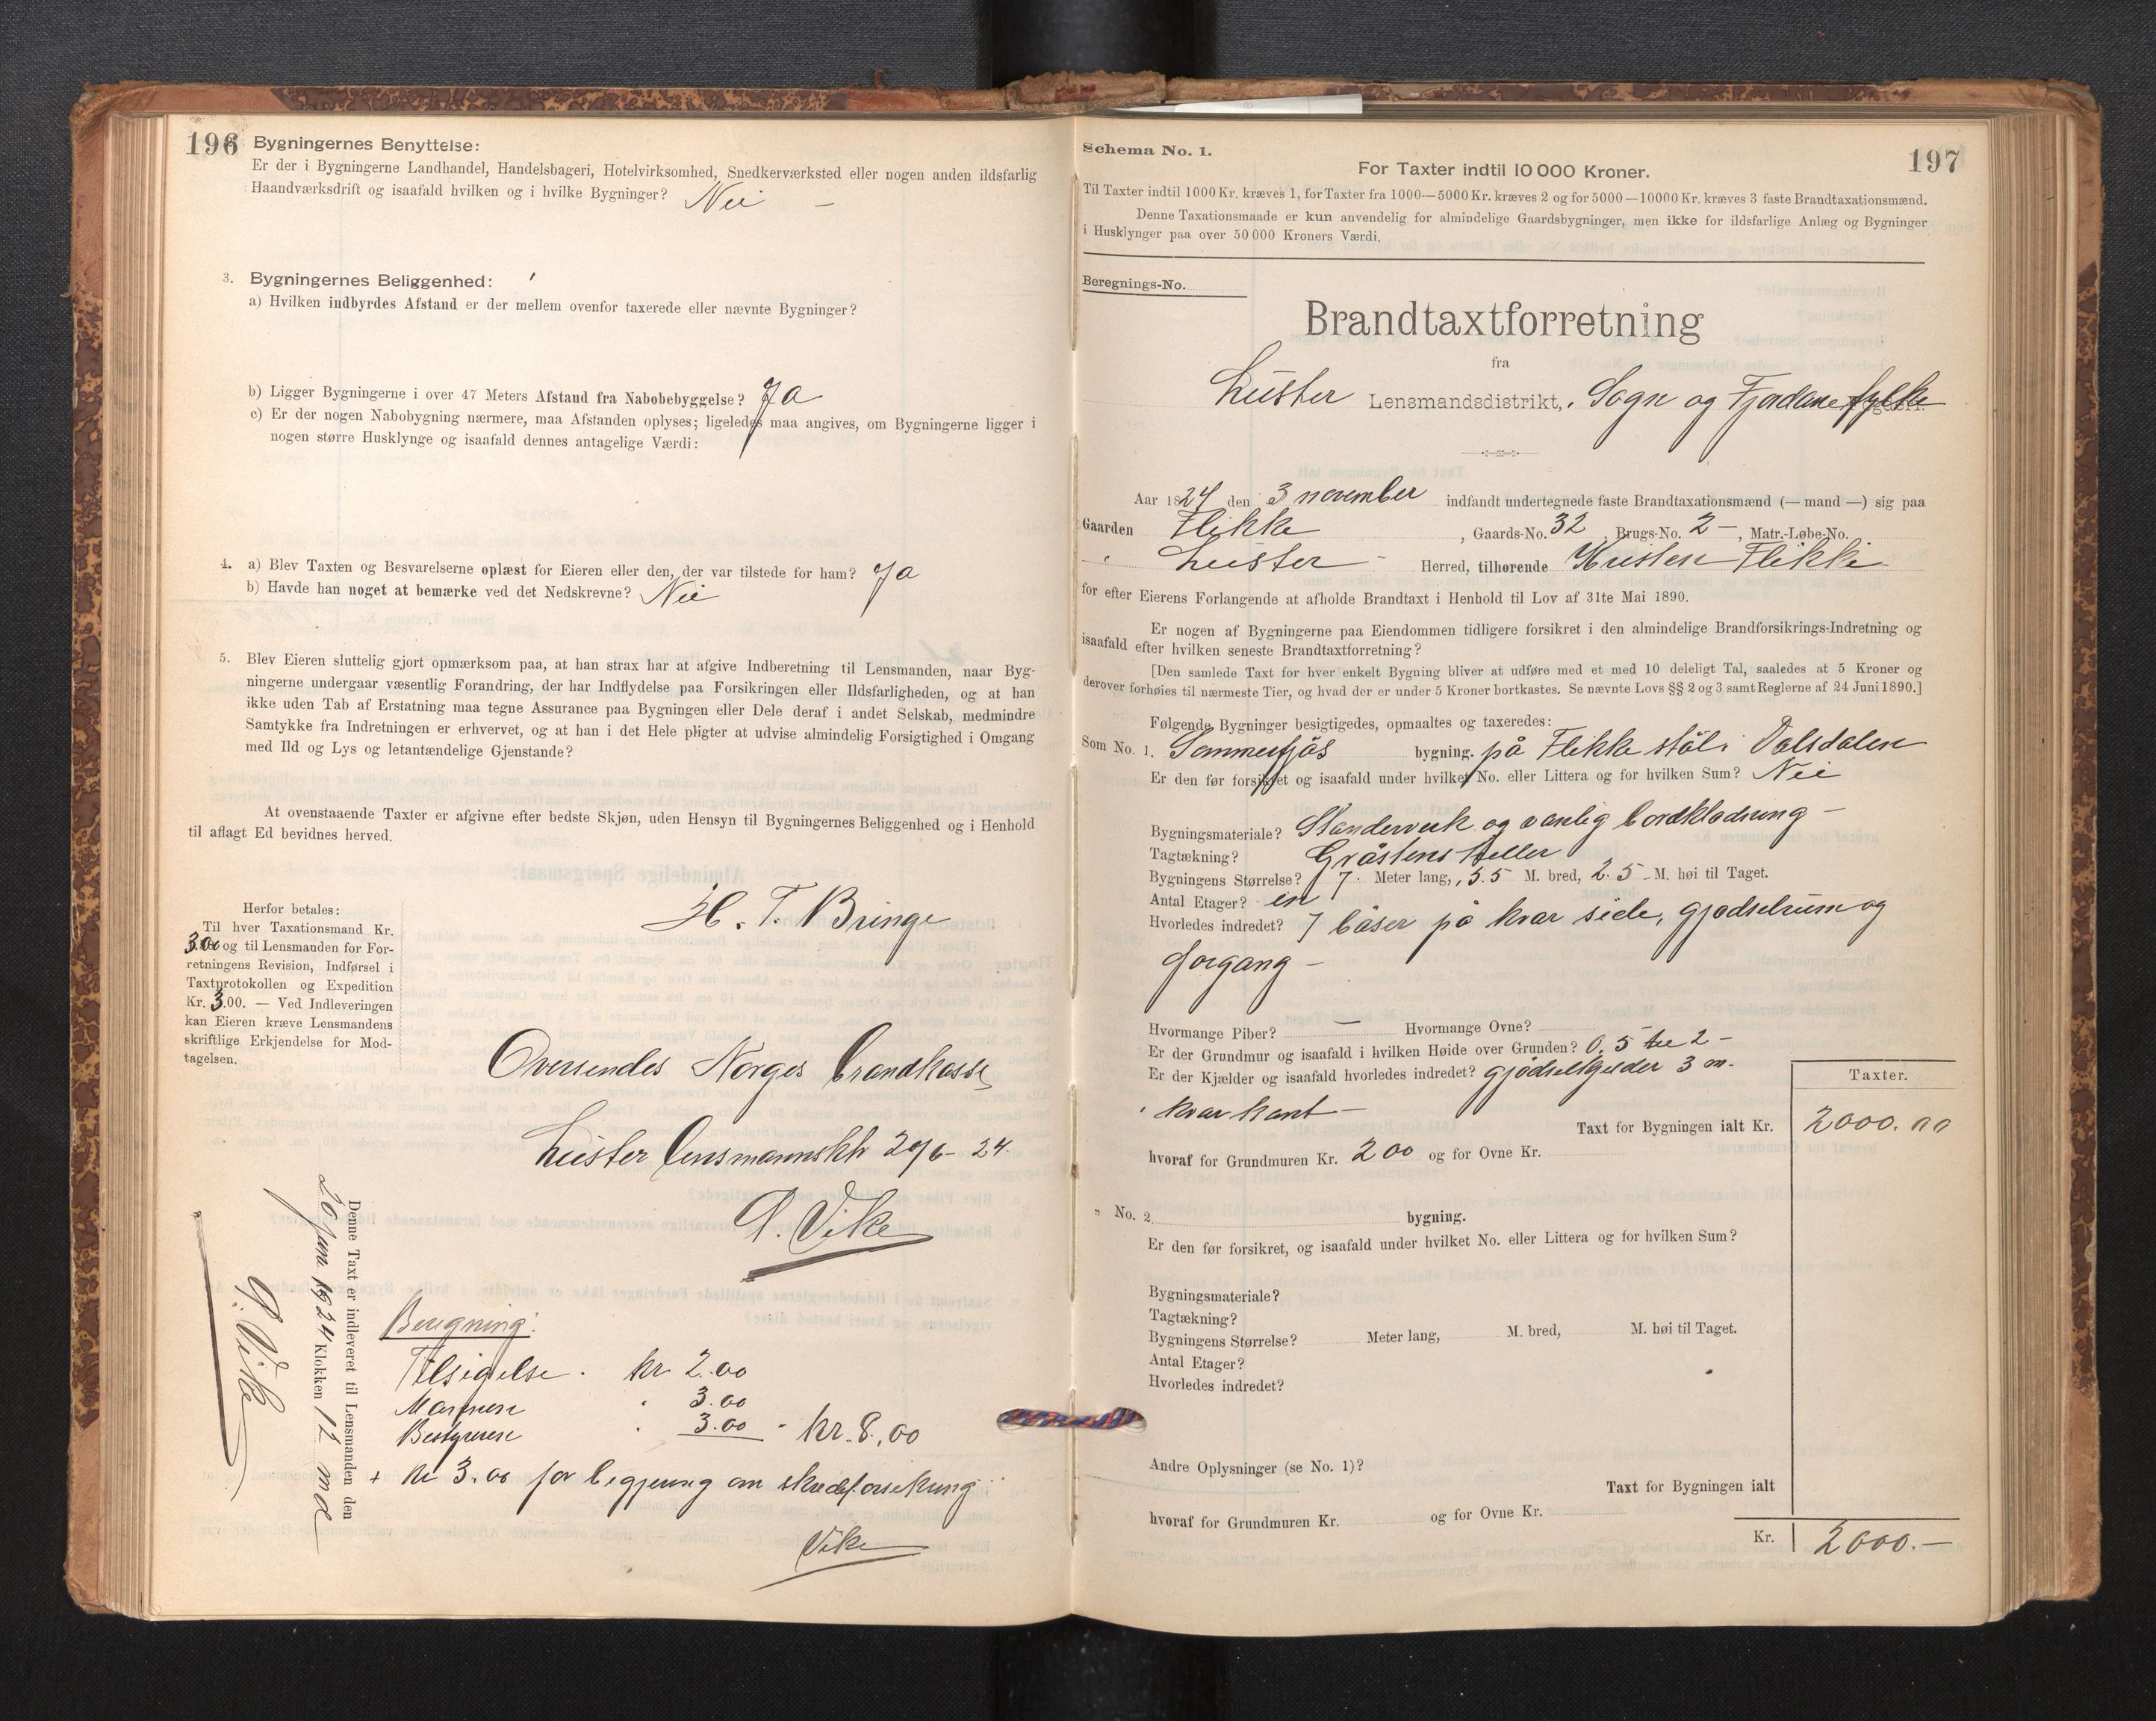 196
Bygningernes Benyttelse:
Er der i Bygningerne Landhandel, Handelsbageri, Hotelvirksomhed, Snedkerværksted eller nogen anden ildsfarlig
Haandværksdrift og isaafald hvilken og i hvilke Bygninger? Nei –
3. Bygningernes Beliggenhed:
a) Hvilken indbyrdes Afstand er der mellem ovenfor taxerede eller nævnte Bygninger?
b) Ligger Bygningerne i over 47 Meters Afstand fra Nabobebyggelse? Ja
c) Er der nogen Nabobygning nærmere, maa Afstanden oplyses; ligeledes maa angives, om Bygningerne ligger i
nogen større Husklynge og isaafald dennes antagelige Værdi:
4. a) Blev Taxten og Besvarelserne oplæst for Eieren eller den, der var tilstede for ham? Ja
b) Havde han noget at bemærke ved det Nedskrevne? Nei
5. Blev Eieren sluttelig gjort opmærksom paa, at han strax har at afgive Indberetning til Lensmanden, naar Byg-
ningerne undergaar væsentlig Forandring, der har Indflydelse paa Forsikringen eller Ildsfarligheden, og at han
ikke uden Tab af Erstatning maa tegne Assurance paa Bygningen eller Dele deraf i andet Selskab, medmindre
Samtykke fra Indretningen er erhvervet, og at han i det Hele pligter at udvise almindelig Forsigtighed i Omgang
med Ild og Lys og letantændelige Gjenstande?
At ovenstaaende Taxter er afgivne efter bedste Skjøn, uden Hensyn til Bygningernes Beliggenhed og i Henhold
til aflagt Ed bevidnes herved.
H. T. Bringe
Herfor betales:
Til hver Taxationsmand Kr.
3.00 og til Lensmanden for For-
retningens Revision, Indførsel i
Taxtprotokollen og Expedition
Kr. 3.00. — Ved Indleveringen
kan Eieren kræve Lensmandens
skriftlige Erkjendelse for Mod-
tagelsen.
Oversendes Norges brandkasse
Luster lensmannskt 29/6 - 24.
P. Vike
Denne Taxt er indleveret til Lensmanden den
20 juni 1924 Klokken 12 md
P. Vike
Beregning:
Tilsigelse . kr 2.00
3.00
Bestyrerne " 3.00 - kr. 8,00
+ kr 3.00 for begjering om skredforsikring
Vike
Schema No. 1.
197
For Taxter indtil 10 000 Kroner.
Til Taxter indtil 1000 Kr. kræves 1, for Taxter fra 1000—5000 Kr. kræves 2 og for 5000—10000 Kr. kræves 3 faste Brandtaxationsmænd.
Denne Taxationsmaade er kun anvendelig for almindelige Gaardsbygninger, men ikke for ildsfarlige Anlæg og Bygninger
i Husklynger paa over 50 000 Kroners Værdi.
Beregnings-No.
Brandtaxtforretning
fra
Luster Lensmandsdistrikt, Sogn og Fjordane fylke
Aar 1824 den 3 november indfandt undertegnede faste Brandtaxationsmænd (— mand —) sig paa
Gaarden Flikke, Gaards-No. 32 Brugs-No. 2 –, Matr.-Løbe-No.
i Luster – Herred, tilhørende Kristen Flikke
for efter Eierens Forlangende at afholde Brandtaxt i Henhold til Lov af 31te Mai 1890.
Er nogen af Bygningerne paa Eiendommen tidligere forsikret i den almindelige Brandforsikrings-Indretning og
isaafald efter hvilken seneste Brandtaxtforretning?
[Den samlede Taxt for hver enkelt Bygning bliver at udføre med et med 10 deleligt Tal, saaledes at 5 Kroner og
derover forhøies til nærmeste Tier, og hvad der er under 5 Kroner bortkastes. Se nævnte Lovs §§ 2 og 3 samt Reglerne af 24 Juni 1890.]
Følgende Bygninger besigtigedes, opmaaltes og taxeredes:
Som No. 1. Sommerfjøs bygning. på Flikke støl i Dalsdalen
Er den før forsikret og isaafald under hvilket No. eller Littera og for hvilken Sum? Nei
Bygningsmateriale? Stenderverk og vanlig bordkledning –
Tagtækning? Gråstens heller
Bygningens Størrelse? 7. Meter lang, 5.5 M. bred, 2.5 M. høi til Taget.
Antal Etager? en
Hvorledes indredet? 7 båser på kvar side, gjødselrum og
forgang –
Hvormange Piber? — Hvormange Ovne?
Er der Grundmur og isaafald i hvilken Høide over Grunden? 0,5 til 2 –
Er der Kjælder og isaafald hvorledes indredet? gjødselkjelder 3 m.
kvar kant –
Taxter.
Taxt for Bygningen ialt Kr. 2000.00
hvoraf for Grundmuren Kr. 200 og for Ovne Kr.
" No. 2 bygning.
Er den før forsikret, og isaafald under hvilket No. eller Littera og for hvilken Sum?
Bygningsmateriale?
Tagtækning?
Bygningens Størrelse? Meter lang, M. bred, M. høi til Taget.
Antal Etager?
Hvorledes indredet?
Andre Oplysninger (se No. 1)?
Taxt for Bygningen ialt
hvoraf for Grundmuren Kr. og for Ovne Kr.
Kr. 2000.—